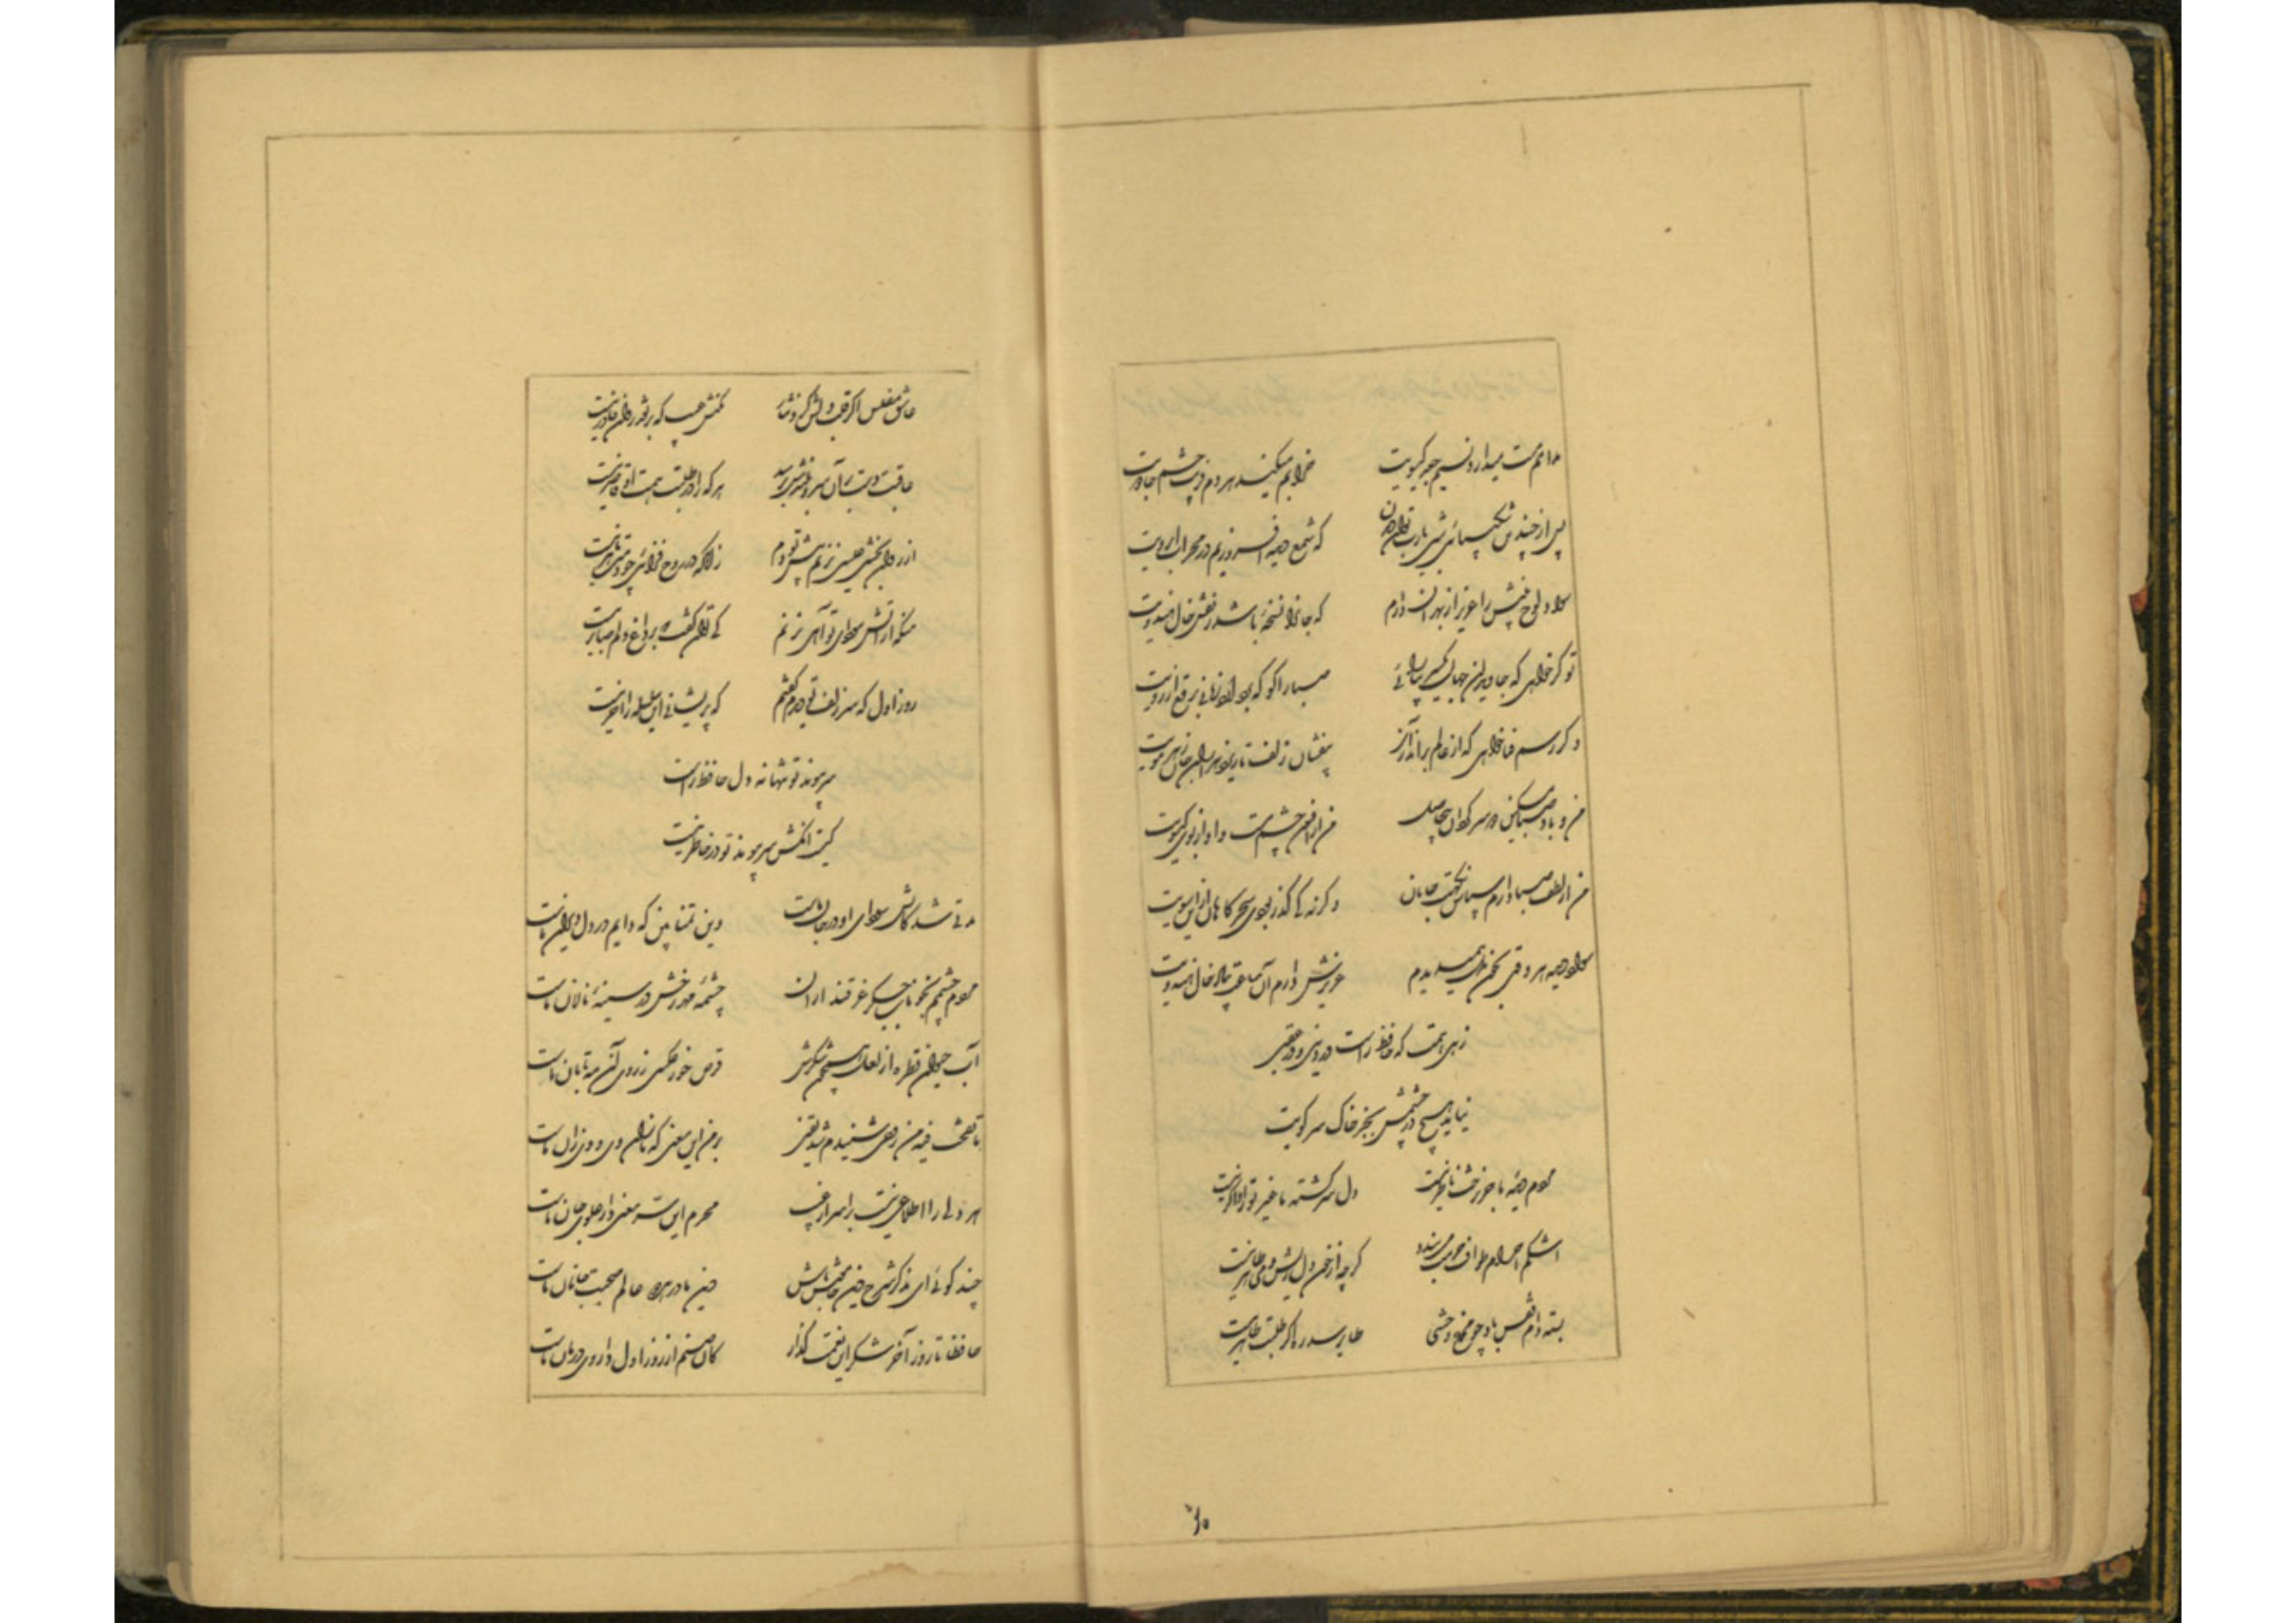 مدامم مست میدارد نسیم جعد گیسویت خرابم میکند هر دم فریب چشم جادویت
پس از چندین شکیبائی شبی یارب توان دیدن که شمع دیده افروزیم در محراب ابرویت
سواد لوح بینش را عزیز از بهر آن دارم که جانرا نسخهٔ باشد ز نقش خال هندویت
تو گر خواهی که جاویدان جهان یکسر بیارائی صبا را گو که بردارد زمانی برقع از رویت
وگر رسم فنا خواهی که از عالم براندازی بیفشان زلف تا ریزد هزاران جان ز هر مویت
من و باد صبا مسکین دو سرگردان بیحاصل من از افسون چشمت مست و او از بوی گیسویت
من از لطف صبا دارم سپاس نکهت جانان وگرنه کی گذر بودی سحرگاهان از این سویت
سواد دیده هر وقتی بخون دل همی دیدم عزیزش دارم آن ساعت بیاد خال هندویت
زهی همت که حافظ راست در دنیی و در عقبی
نیاید هیچ در چشمش بجز خاک سر کویت
مردم دیدهٔ ما جز برخت ناظر نیست دل سرگشتهٔ ما غیر تو را ذاکر نیست
اشکم احرام طواف حرمت میبندد گرچه از خون دل ریش دمی طاهر نیست
بستهٔ دام قفس باد چو مرغ وحشی طایر سدره اگر در طلبت طایر نیست
عاشق مفلس اگر قلب دلش کرد نثار مکنش عیب که بر نقد روان قادر نیست
عاقبت دست بر آن سرو بلندش برسد هر که را در طلبت همت او قاصر نیست
از روان بخشی عیسی نزنم پیش تو دم زانکه در روح فزائی چو لبت ماهر نیست
منکه از آتش سودای تو آهی نزنم کی توان گفت که بر داغ دلم صابر نیست
روز اول که سر زلف تو دیدم گفتم که پریشانی این سلسله را آخر نیست
سر پیوند تو تنها نه دل حافظ راست
کیست آنکش سر پیوند تو در خاطر نیست
مدتی شد کاتش سودای او در جان ماست وین تمنا بین که دایم در دل ویران ماست
مردم چشمم بخوناب جگر غرقند از آن چشمهٔ مهر رخش در سینهٔ نالان ماست
آب حیوان قطرهٔ از لعل همچون شکرش قرص خور عکسی ز روی آن مه تابان ماست
تا نفخت فیه من روحی شنیدم شد یقین بر من این معنی که ما زان وی و وی زان ماست
هر دلی را اطلاعی نیست بر اسرار غیب محرم این سر معنی دار علوی جان ماست
چند گوئی ای مذکر شرح دین خاموش باش دین ما در هر دو عالم صحبت جانان ماست
حافظا تا روز آخر شکر این نعمت گذار کان صنم از روز اول داروی درمان ماست